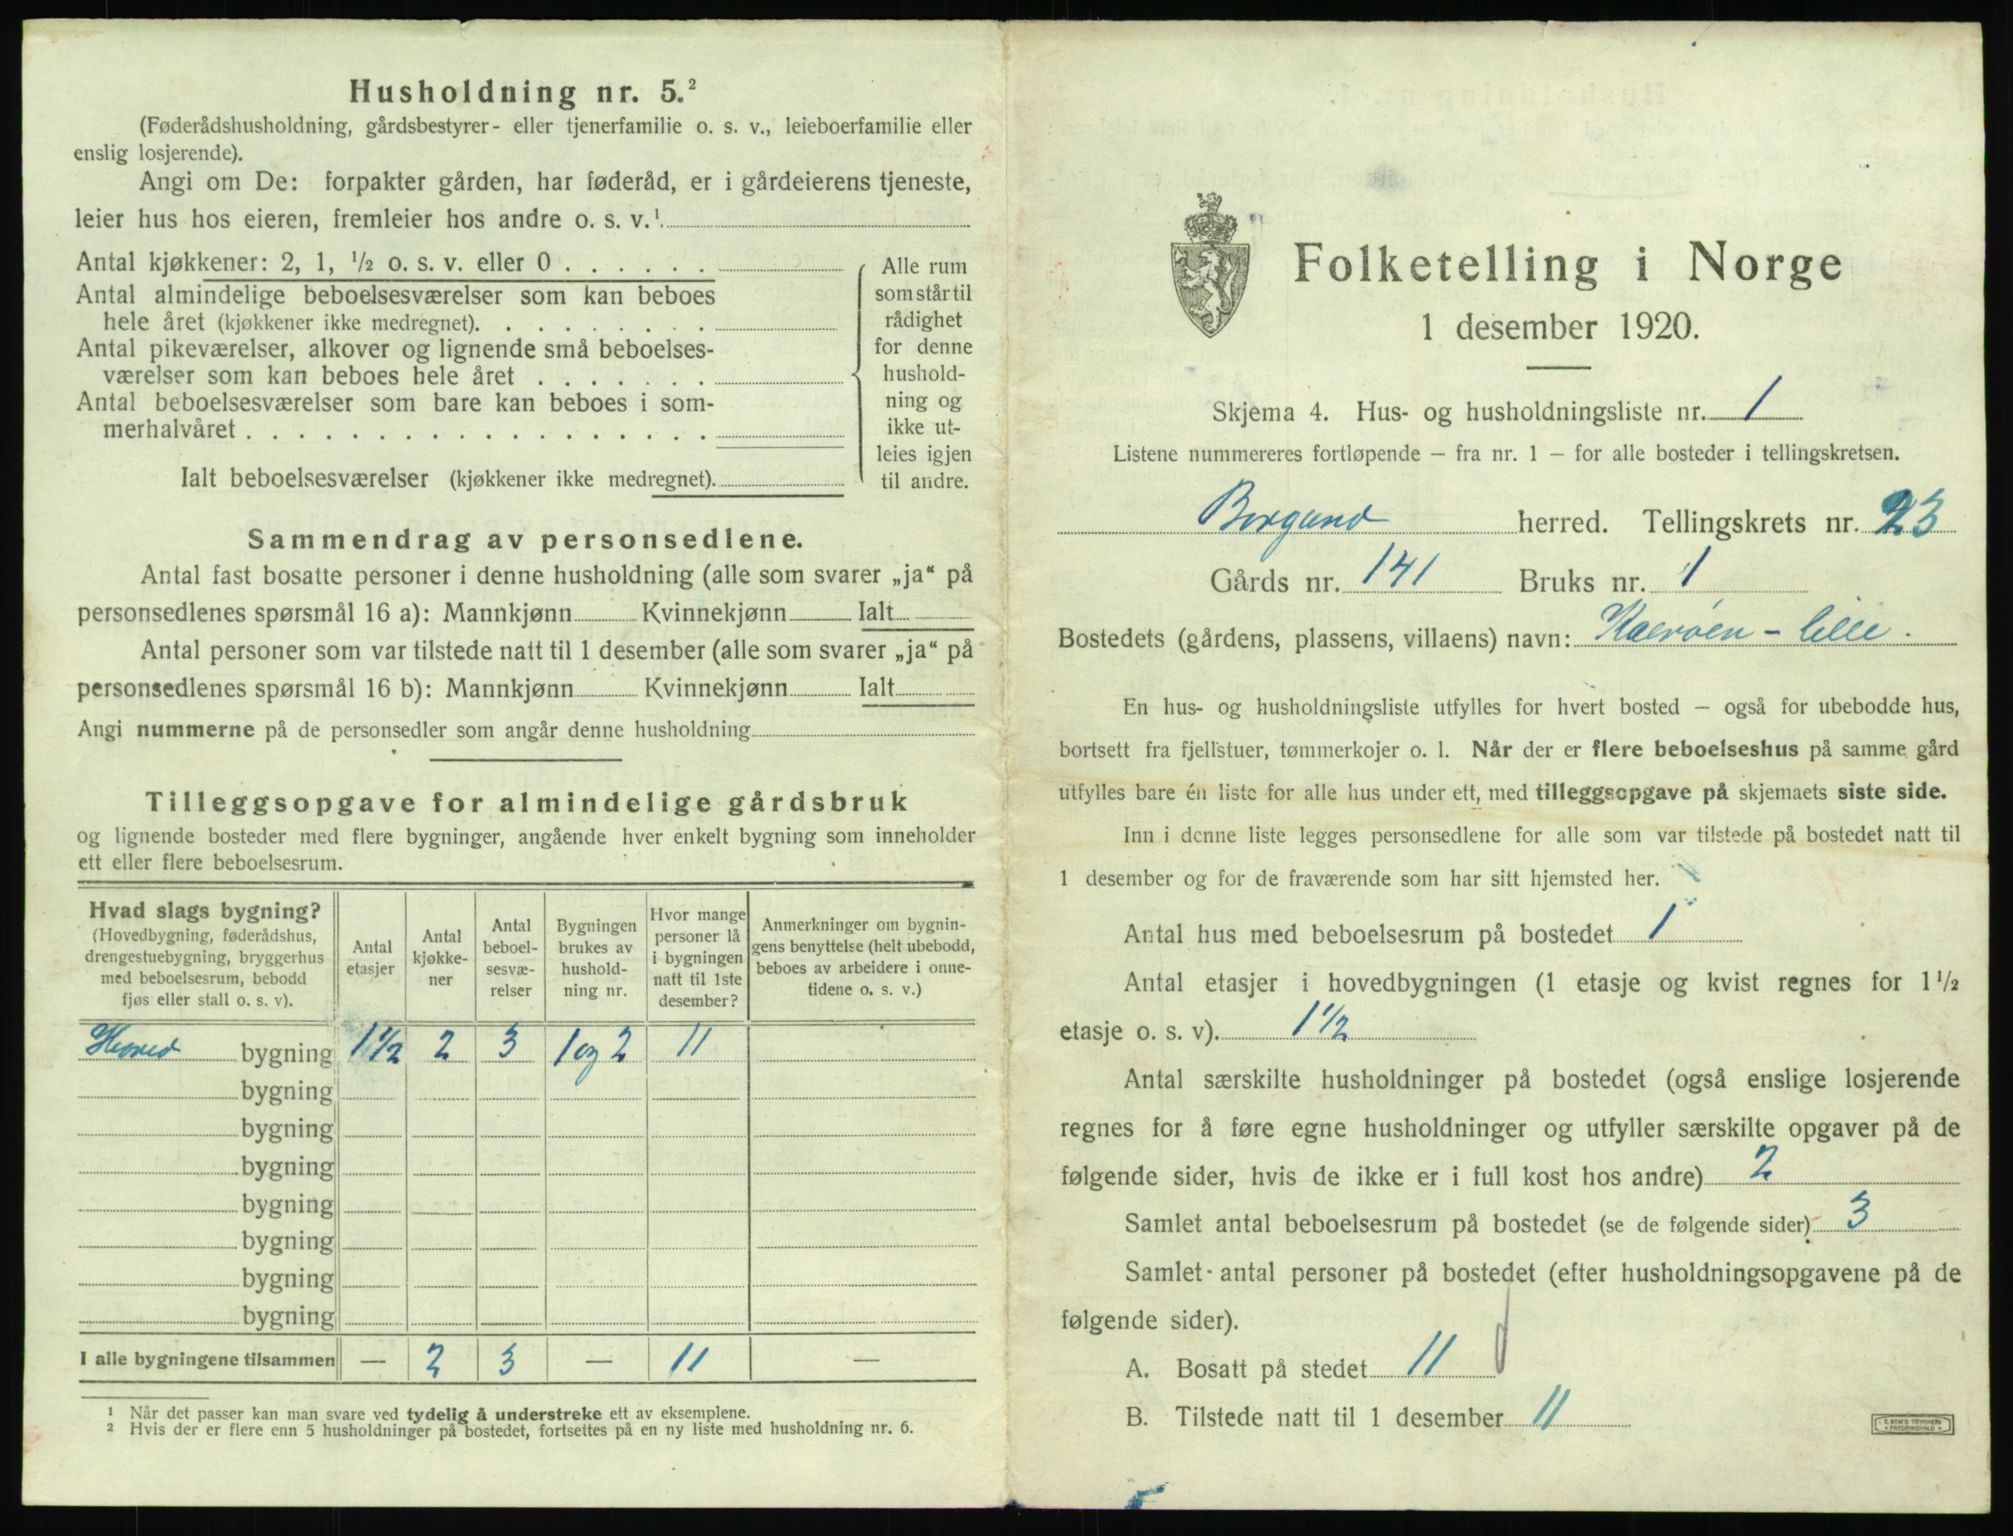 Husholdning nr. 5.²
(Føderådshusholdning, gårdsbestyrer- eller tjenerfamilie o. s. v., leieboerfamilie eller
enslig losjerende).
Angi om De: forpakter gården, har føderåd, er i gårdeierens tjeneste,
leier hus hos eieren, fremleier hos andre o. s. v.¹
Antal kjøkkener: 2, 1, ½ o. s. v. eller 0 . . . . . .
Antal almindelige beboelsesværelser som kan beboes
hele året (kjøkkener ikke medregnet). . . . . . . . .
Antal pikeværelser, alkover og lignende små beboelses-
værelser som kan beboes hele året . . . . . . .
Antal beboelsesværelser som bare kan beboes i som-
merhalvåret . . . . . . . . . . . . . . . . . .
Ialt beboelsesværelser (kjøkkener ikke medregnet).
Alle rum
som står til
rådighet
for denne
hushold-
ning og
ikke ut-
leies igjen
til andre.
Sammendrag av personsedlene.
Antal fast bosatte personer i denne husholdning (alle som svarer „ja“ på
personsedlenes spørsmål 16 a): Mannkjønn Kvinnekjønn Ialt
Antal personer som var tilstede natt til 1 desember (alle som svarer „ja“ på
personsedlenes spørsmål 16 b): Mannkjønn Kvinnekjønn Ialt
Angi nummerne på de personsedler som angår denne husholdning
Tilleggsopgave for almindelige gårdsbruk
og lignende bosteder med flere bygninger, angående hver enkelt bygning som inneholder
ett eller flere beboelsesrum.
Hvad slags bygning?
(Hovedbygning, føderådshus,
drengestuebygning, bryggerhus
med beboelsesrum, bebodd
fjøs eller stall o. s. v).
Antal
etasjer
Antal
kjøkke-
ner
Antal
beboel-
sesvæ-
relser
Bygningen
brukes av
hushold-
ning nr.
Hvor mange
personer lå
i bygningen
natt til 1ste
desember?
Anmerkninger om bygnin-
gens benyttelse (helt ubebodd,
beboes av arbeidere i onne-
tidene o. s. v.)
Hoved bygning 1½ 2 3 1 og 2 11
bygning
bygning
bygning
bygning
bygning
bygning
bygning
I alle bygningene tilsammen — 2 3 — 11 —
¹ Når det passer kan man svare ved tydelig å understreke ett av eksemplene.
² Hvis der er flere enn 5 husholdninger på bostedet, fortsettes på en ny liste med husholdning nr. 6.
Folketelling i Norge
1 desember 1920.
Skjema 4. Hus- og husholdningsliste nr. 1
Listene nummereres fortløpende — fra nr. 1 — for alle bosteder i tellingskretsen.
Borgund herred. Tellingskrets nr. 23
Gårds nr. 141 Bruks nr. 1
Bostedets (gårdens, plassens, villaens) navn: Kalvøen - lille.
En hus- og husholdningsliste utfylles for hvert bosted — også for ubebodde hus,
bortsett fra fjellstuer, tømmerkojer o. l. Når der er flere beboelseshus på samme gård
utfylles bare én liste for alle hus under ett, med tilleggsopgave på skjemaets siste side.
Inn i denne liste legges personsedlene for alle som var tilstede på bostedet natt til
1 desember og for de fraværende som har sitt hjemsted her.
Antal hus med beboelsesrum på bostedet 1
Antal etasjer i hovedbygningen (1 etasje og kvist regnes for 1½
etasje o. s. v). 1½
Antal særskilte husholdninger på bostedet (også enslige losjerende
regnes for å føre egne husholdninger og utfyller særskilte opgaver på de
følgende sider, hvis de ikke er i full kost hos andre) 2
Samlet antal beboelsesrum på bostedet (se de følgende sider) 3
Samlet antal personer på bostedet (efter husholdningsopgavene på de
følgende sider).
A. Bosatt på stedet 11
B. Tilstede natt til 1 desember 11